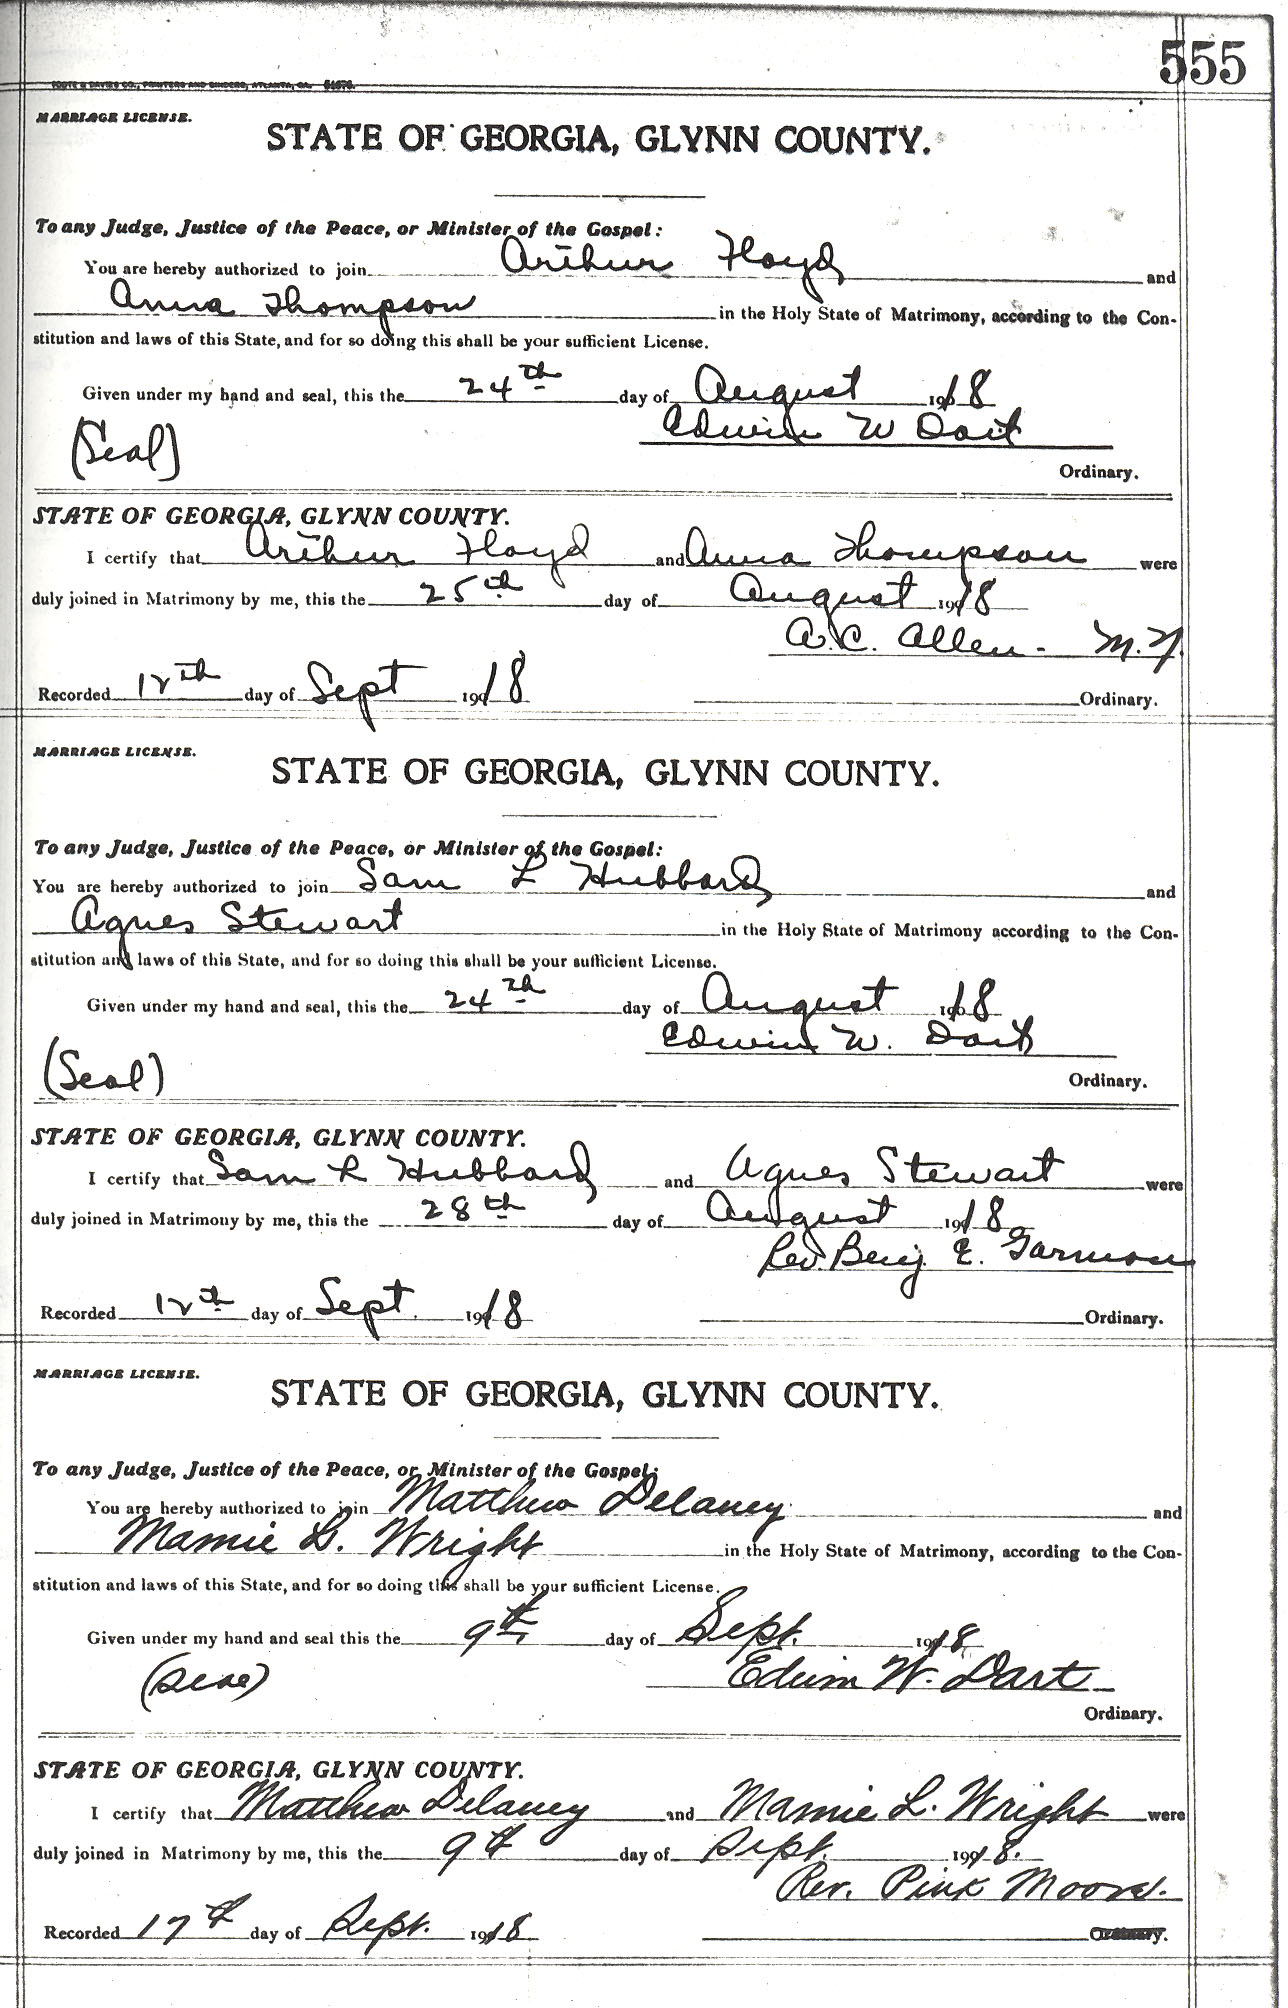 555
FOOTE & DAVIES CO., PRINTERS AND BINDERS, ATLANTA, GA.
MARRIAGE LICENSE.
STATE OF GEORGIA, GLYNN COUNTY.
To any Judge, Justice of the Peace, or Minister of the Gospel:
You are hereby authorized to join Arthur Floyd and
Anna Thompson in the Holy State of Matrimony, according to the Con-
stitution and laws of this State, and for so doing this shall be your sufficient License.
Given under my hand and seal, this the 24th day of August 1918
Edwin W Dart
(Seal)
Ordinary.
STATE OF GEORGIA, GLYNN COUNTY.
I certify that Arthur Floyd and Anna Thompson were
duly joined in Matrimony by me, this the 25th day of August 1918
A. C. Allen - M.G.
Recorded 12th day of Sept 1918 Ordinary.
MARRIAGE LICENSE.
STATE OF GEORGIA, GLYNN COUNTY.
To any Judge, Justice of the Peace, or Minister of the Gospel:
You are hereby authorized to join Sam L Hubbard and
Agnes Stewart in the Holy State of Matrimony according to the Con-
stitution and laws of this State, and for so doing this shall be your sufficient License.
Given under my hand and seal, this the 24th day of August 1918
Edwin W. Dart
(Seal)
Ordinary.
STATE OF GEORGIA, GLYNN COUNTY.
I certify that Sam L Hubbard and Agnes Stewart were
duly joined in Matrimony by me, this the 28th day of August 1918
Rev. Benj. E. Garmon
Recorded 12th day of Sept. 1918 Ordinary.
MARRIAGE LICENSE.
STATE OF GEORGIA, GLYNN COUNTY.
To any Judge, Justice of the Peace, or Minister of the Gospel:
You are hereby authorized to join Matthew Delaney and
Mamie L. Wright in the Holy State of Matrimony, according to the Con-
stitution and laws of this State, and for so doing this shall be your sufficient License.
Given under my hand and seal this the 9th day of Sept. 1918
(Seal) Edwin W. Dart
Ordinary.
STATE OF GEORGIA, GLYNN COUNTY.
I certify that Matthew Delaney and Mamie L. Wright were
duly joined in Matrimony by me, this the 9th day of Sept. 1918.
Rev. Pink Moore.
Recorded 17th day of Sept. 1918 Ordinary.